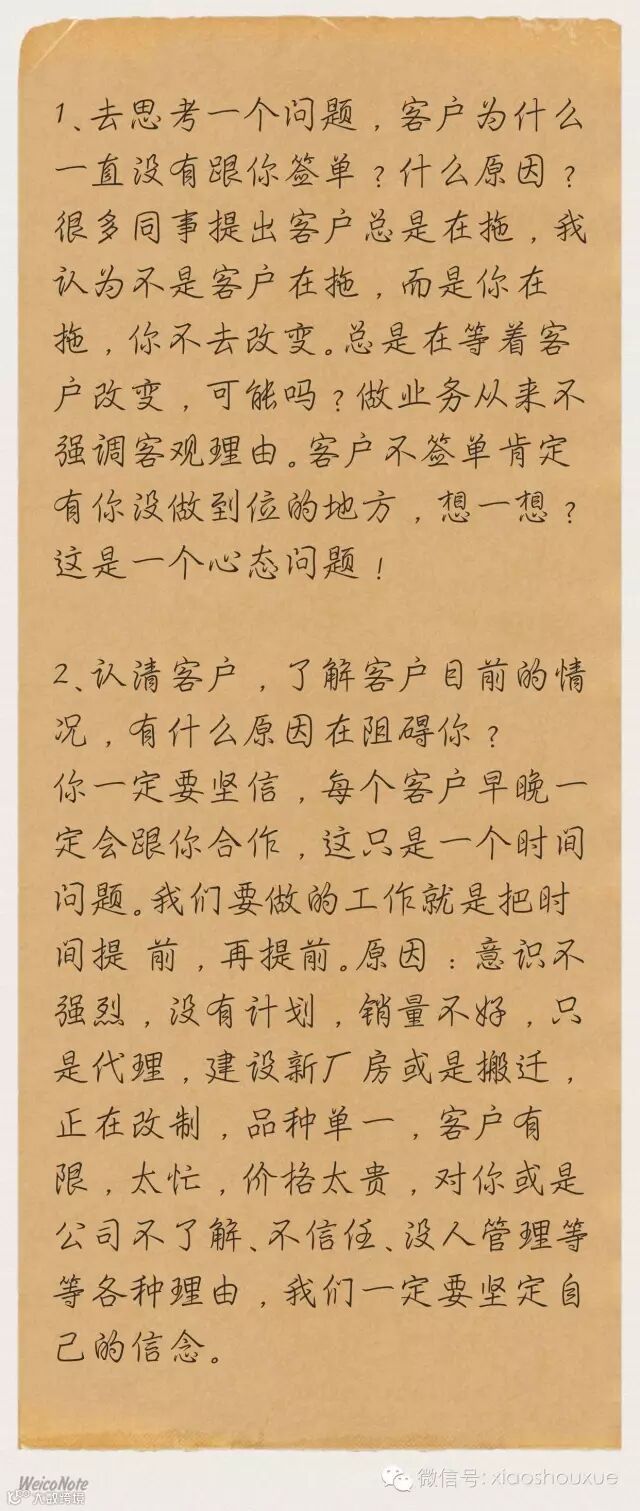 1、去思考一个问题，客户为什么
一直没有跟你签单？什么原因？
很多同事提出客户总是在拖，我
认为不是客户在拖，而是你在
拖，你不去改变。总是在等着客
户改变，可能吗？做业务从来不
强调客观理由。客户不签单肯定
有你没做到位的地方，想一想？
这是一个心态问题！
2、认清客户，了解客户目前的情
况，有什么原因在阻碍你？
你一定要坚信，每个客户早晚一
定会跟你合作，这只是一个时间
问题。我们要做的工作就是把时
间提 前，再提前。原因：意识不
强烈，没有计划，销量不好，只
是代理，建设新厂房或是搬迁，
正在改制，品种单一，客户有
限，太忙，价格太贵，对你或是
公司不了解、不信任、没人管理等
等各种理由，我们一定要坚定自
己的信念。
WeicoNote
大数跨境
微信号: xiaoshouxue